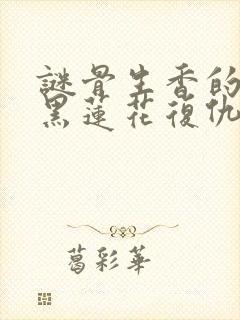 謎骨生香的
黑蓮花復仇
葛彩華